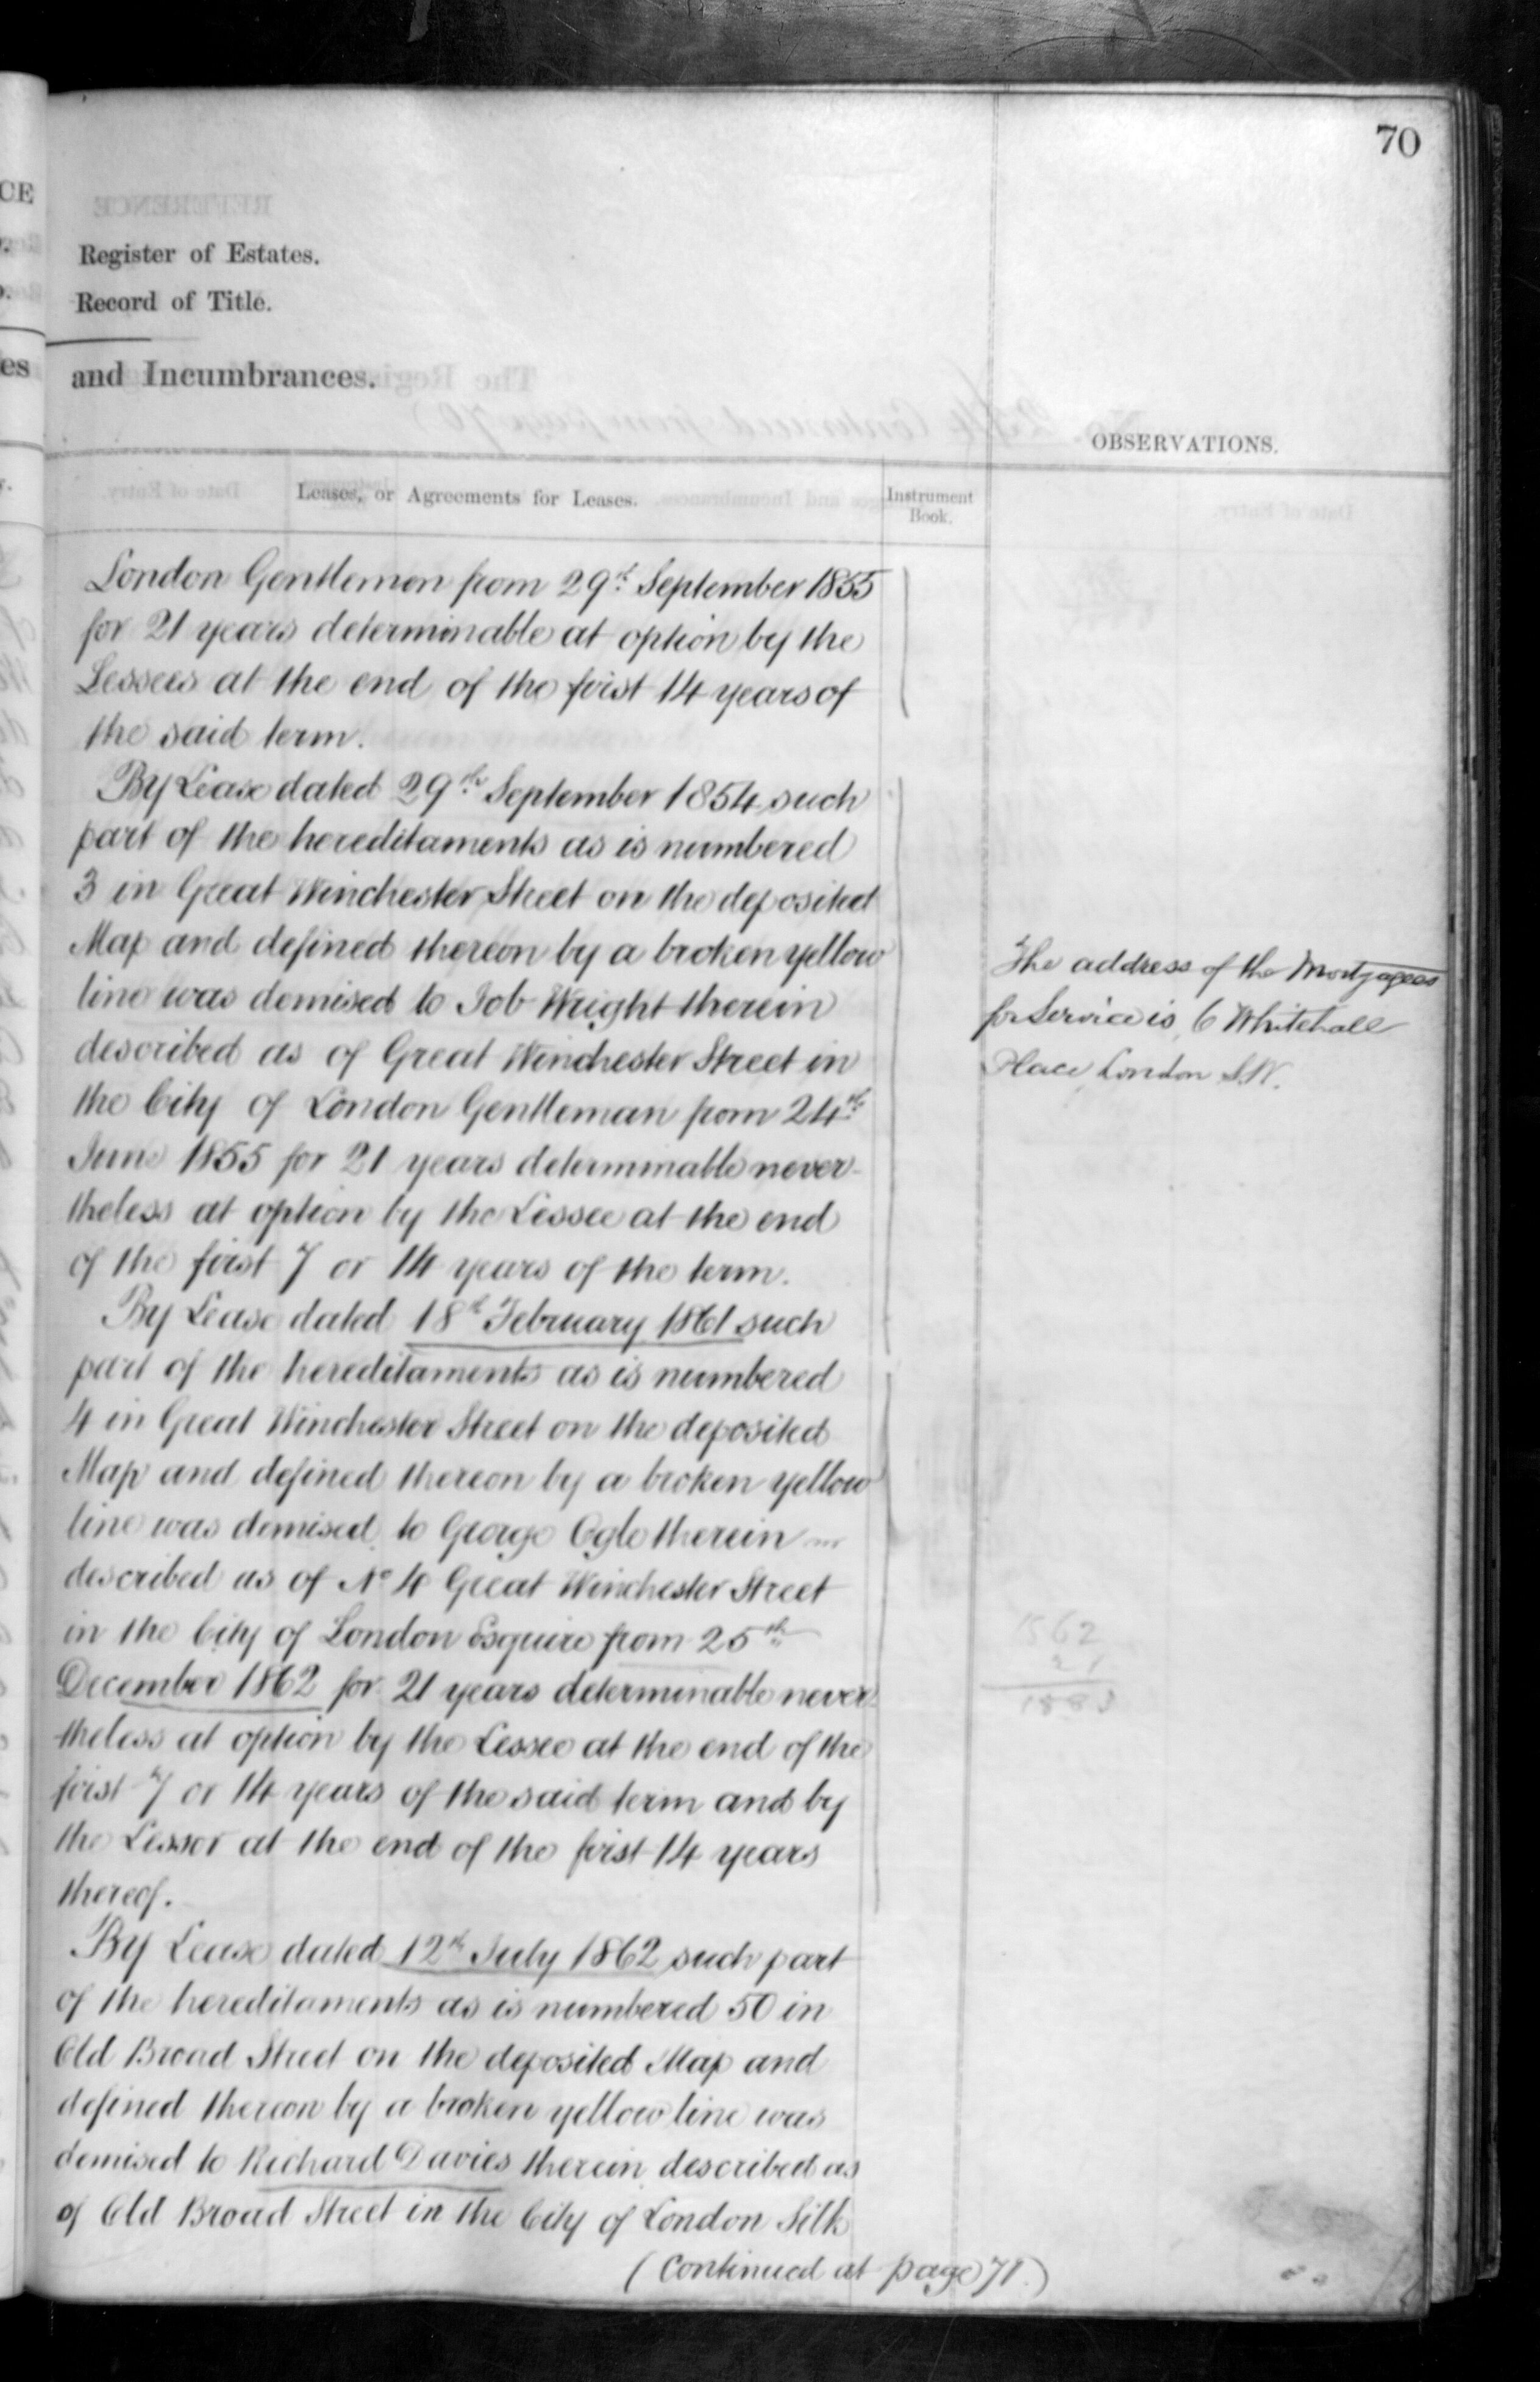 70
Register of Estates.
Record of Title.
and Incumbrances.
OBSERVATIONS.
Leases, or Agreements for Leases.
Instrument
Book.
London Gentlemen from 29th September 1855
for 21 years determinable at option by the
Lessees at the end of the first 14 years of
the said term.
By Lease dated 29th September 1854 such
part of the hereditaments as is numbered
3 in Great Winchester Street on the deposited
Map and defined thereon by a broken yellow
line was demised to Job Wright therein
described as of Great Winchester Street in
the City of London Gentleman from 24th
June 1855 for 21 years determinable never-
theless at option by the Lessee at the end
of the first 7 or 14 years of the term.
By Lease dated 18th February 1861 such
part of the hereditaments as is numbered
4 in Great Winchester Street on the deposited
Map and defined thereon by a broken yellow
line was demised to George Ogle therein
described as of No 4 Great Winchester Street
in the City of London Esquire from 25th
December 1862 for 21 years determinable never-
theless at option by the Lessee at the end of the
first 7 or 14 years of the said term and by
the Lessor at the end of the first 14 years
thereof.
By Lease dated 12th July 1862 such part
of the hereditaments as is numbered 50 in
Old Broad Street on the deposited Map and
defined thereon by a broken yellow line was
demised to Richard Davies therein described as
of Old Broad Street in the City of London Silk
(Continued at page 71.)
The address of the Mortgagees
for Service is 6 Whitehall
Place London S.W.
1862
21
1883